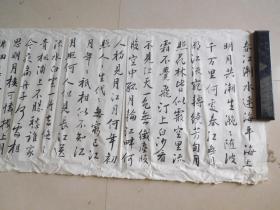 春江潮水連海平海上
明月共潮生灧灧隨波
千万里何處春江無月
明江流宛轉繞芳甸月
照花林皆似霰空里流
霜不覺飛汀上白沙看
不見江天一色無纖塵皎
皎空中孤月輪江畔何
人初見月江月何年初
照人人生代代無窮已江
月年年祇相似不知江
月照何人但見長江送
流水白雲一片去悠悠
青楓浦上不勝愁誰家
今夜扁舟子何處相
思明月樓可憐樓上